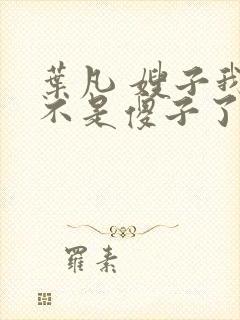 葉凡 嫂子我
不是傻子了
羅素